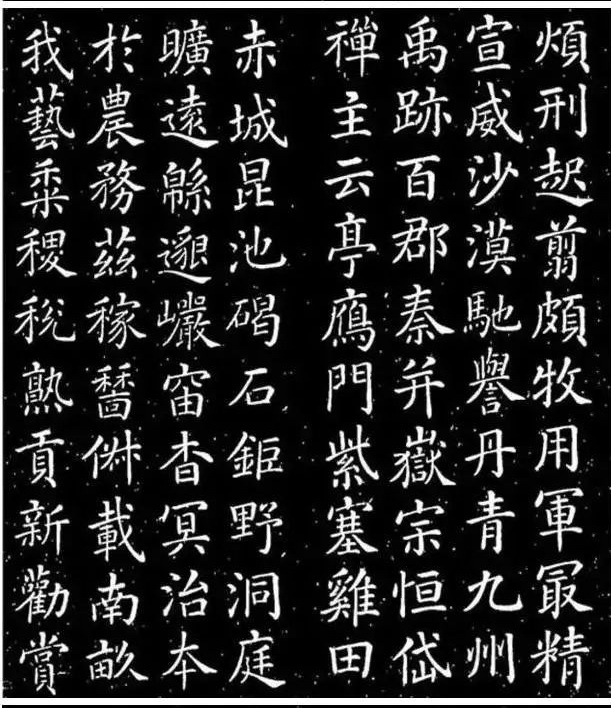 煩刑起翦頗牧用軍冣精
宣威沙漠馳譽丹青九州
禹跡百郡秦并嶽宗恒岱
禪主云亭鴈門紫塞雞田
赤城昆池碣石鉅野洞庭
曠遠緜邈巖岫杳冥治本
於農務茲稼穡俶載南畝
我藝黍稷稅熟貢新勸賞